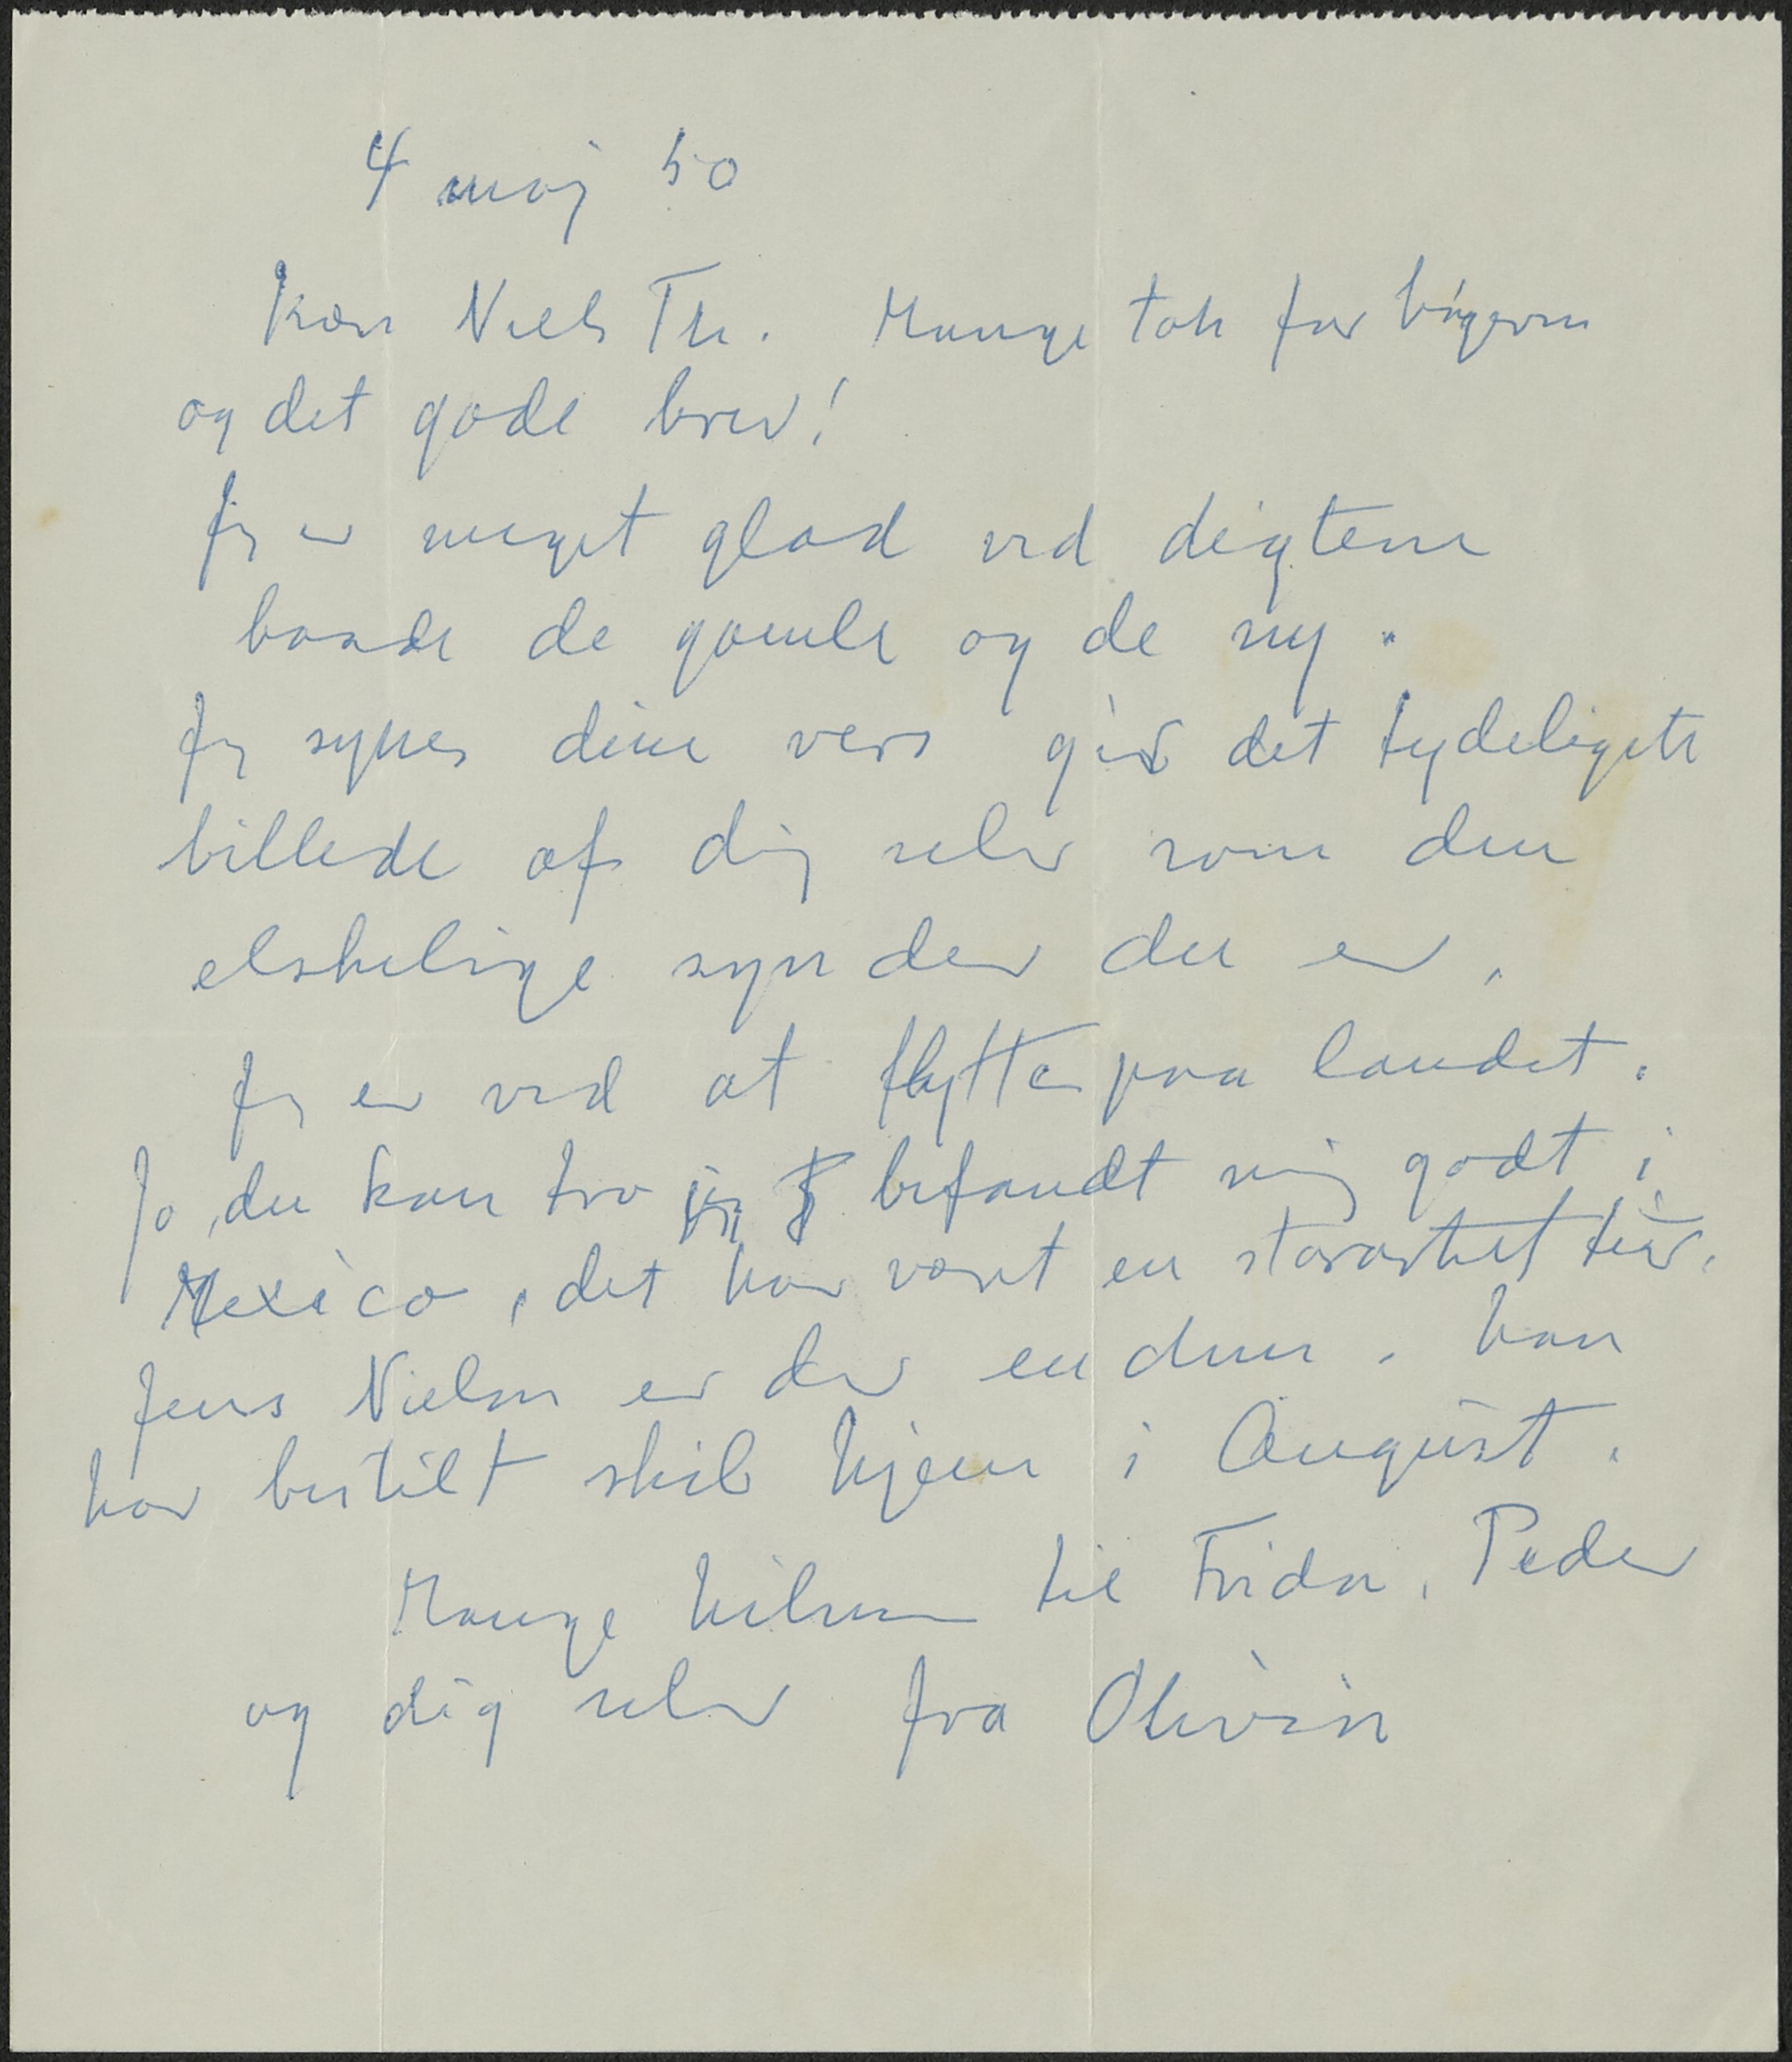 4 maj 50
Kære Niels Th. Mange tak for bøgerne
og det gode brev!
Jeg er meget glad ved digtene
baade de gamle og de ny.
Jeg synes dine vers gir det tydeligste
billede af dig selv som den
elskelige synder du er.
Jeg er ved at flytte paa landet.
Jo, du kan tro jeg befandt mig godt i
Mexico, det har været en storartet tur.
Jens Nielsen er der endnu. han
har bestilt skib hjem i August.
Mange hilsner til Frida, Peder
og dig selv fra Olivia